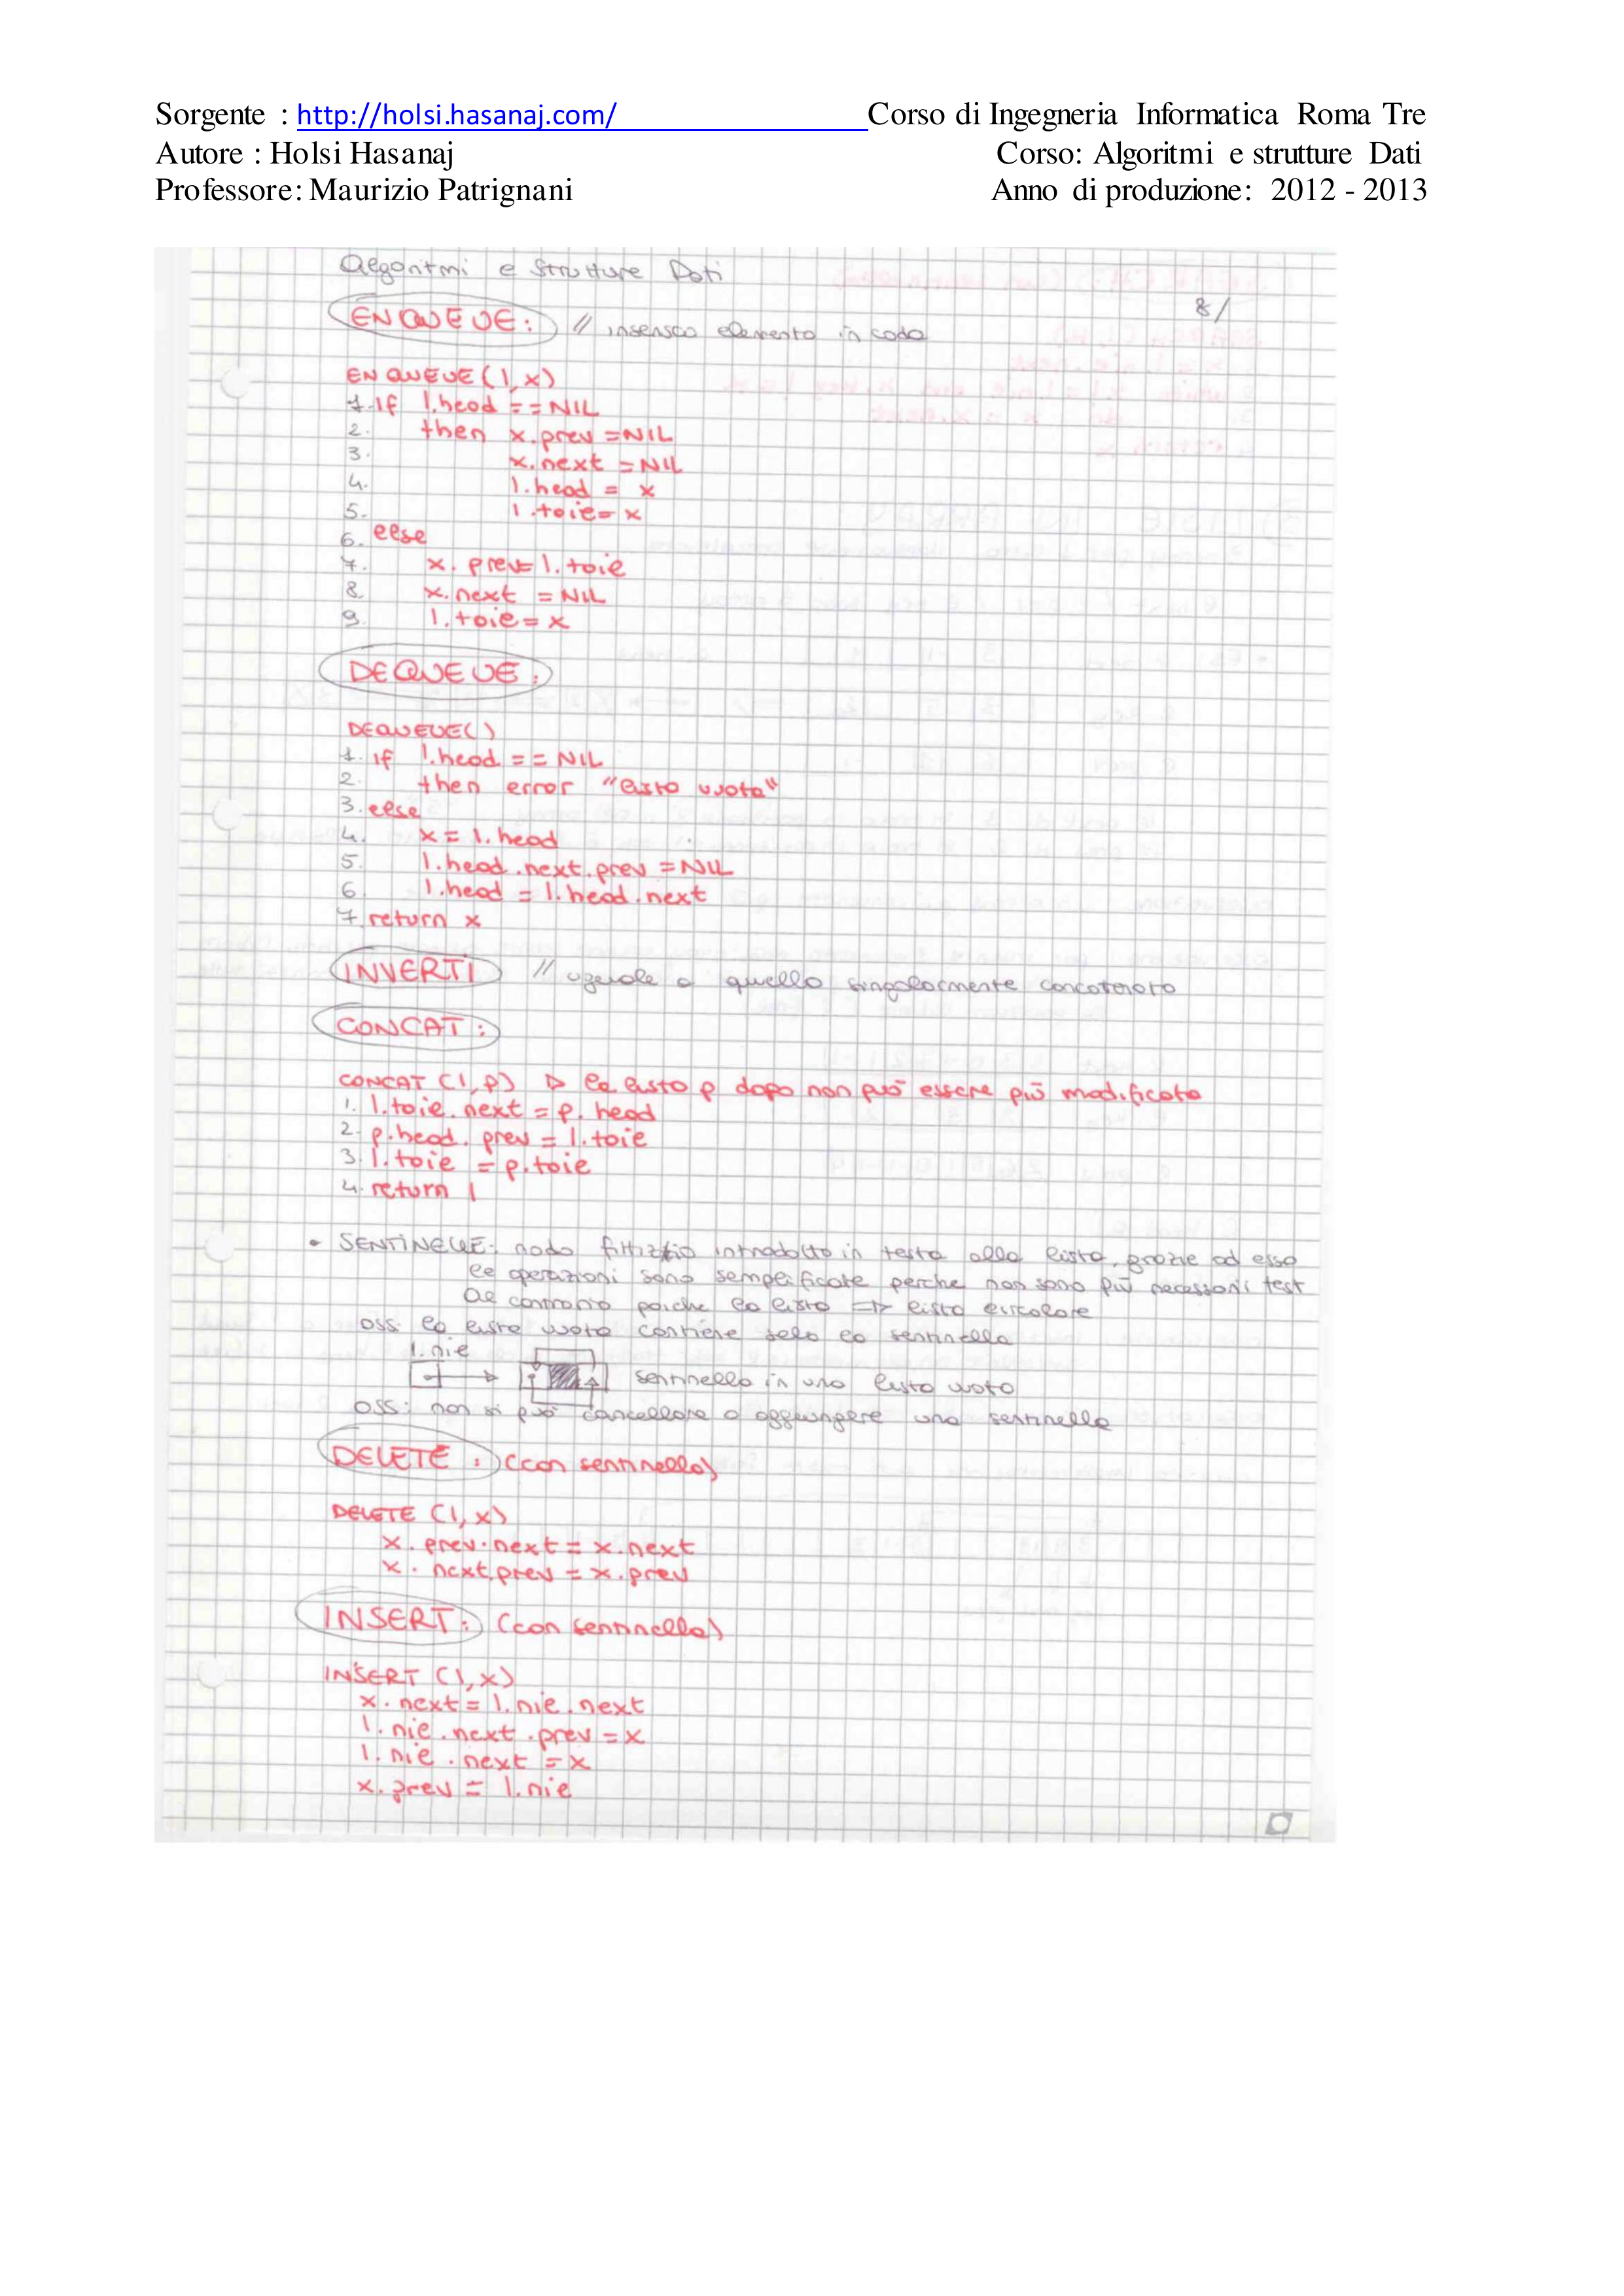 Sorgente : http://holsi.hasanaj.com/ Corso di Ingegneria Informatica Roma Tre
Autore : Holsi Hasanaj Corso: Algoritmi e strutture Dati
Professore: Maurizio Patrignani Anno di produzione: 2012 - 2013
Algoritmi e Strutture Dati
8/
ENQUEUE: // inserisco elemento in coda
ENQUEUE(l,x)
1. if l.head == NIL
2. then x.prev = NIL
3. x.next = NIL
4. l.head = x
5. l.tail = x
6. else
7. x.prev = l.tail
8. x.next = NIL
9. l.tail = x
DEQUEUE:
DEQUEUE()
1. if l.head == NIL
2. then error "lista vuota"
3. else
4. x = l.head
5. l.head.next.prev = NIL
6. l.head = l.head.next
7. return x
INVERTI // uguale a quello singolarmente concatenata
CONCAT:
CONCAT (l,p) ▷ la lista p dopo non può essere più modificata
1. l.tail.next = p.head
2. p.head.prev = l.tail
3. l.tail = p.tail
4. return l
• SENTINELLE: nodo fittizio introdotto in testa alla lista, grazie ad esso
le operazioni sono semplificate perche non sono più necessari i test
al contrario poiche la lista => lista circolare
oss: la lista vuota contiene solo la sentinella
l.nil
sentinella in una lista vuota
oss: non si può cancellare o aggiungere una sentinella
DELETE: (con sentinella)
DELETE (l,x)
x.prev.next = x.next
x.next.prev = x.prev
INSERT: (con sentinella)
INSERT (l,x)
x.next = l.nil.next
l.nil.next.prev = x
l.nil.next = x
x.prev = l.nil